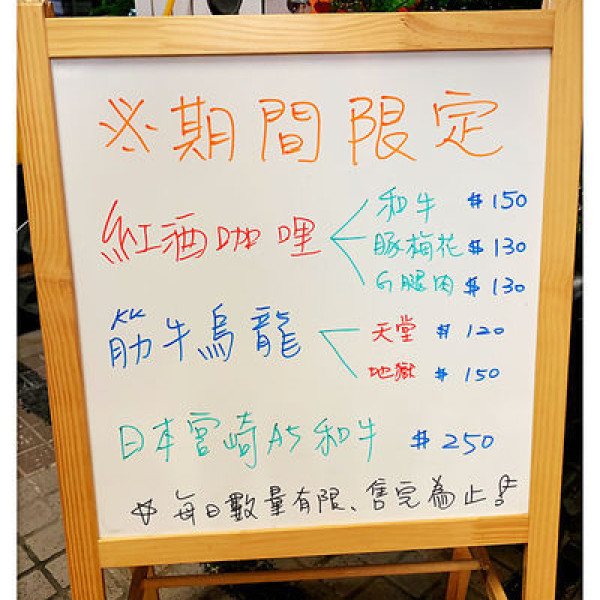 ※期間限定
紅酒咖哩
和牛 $150
豚梅花 $130
白腿肉 $130
筋牛烏龍
天堂 $120
地獄 $150
日本宮崎A5和牛 $250
☆每日數量有限、售完為止